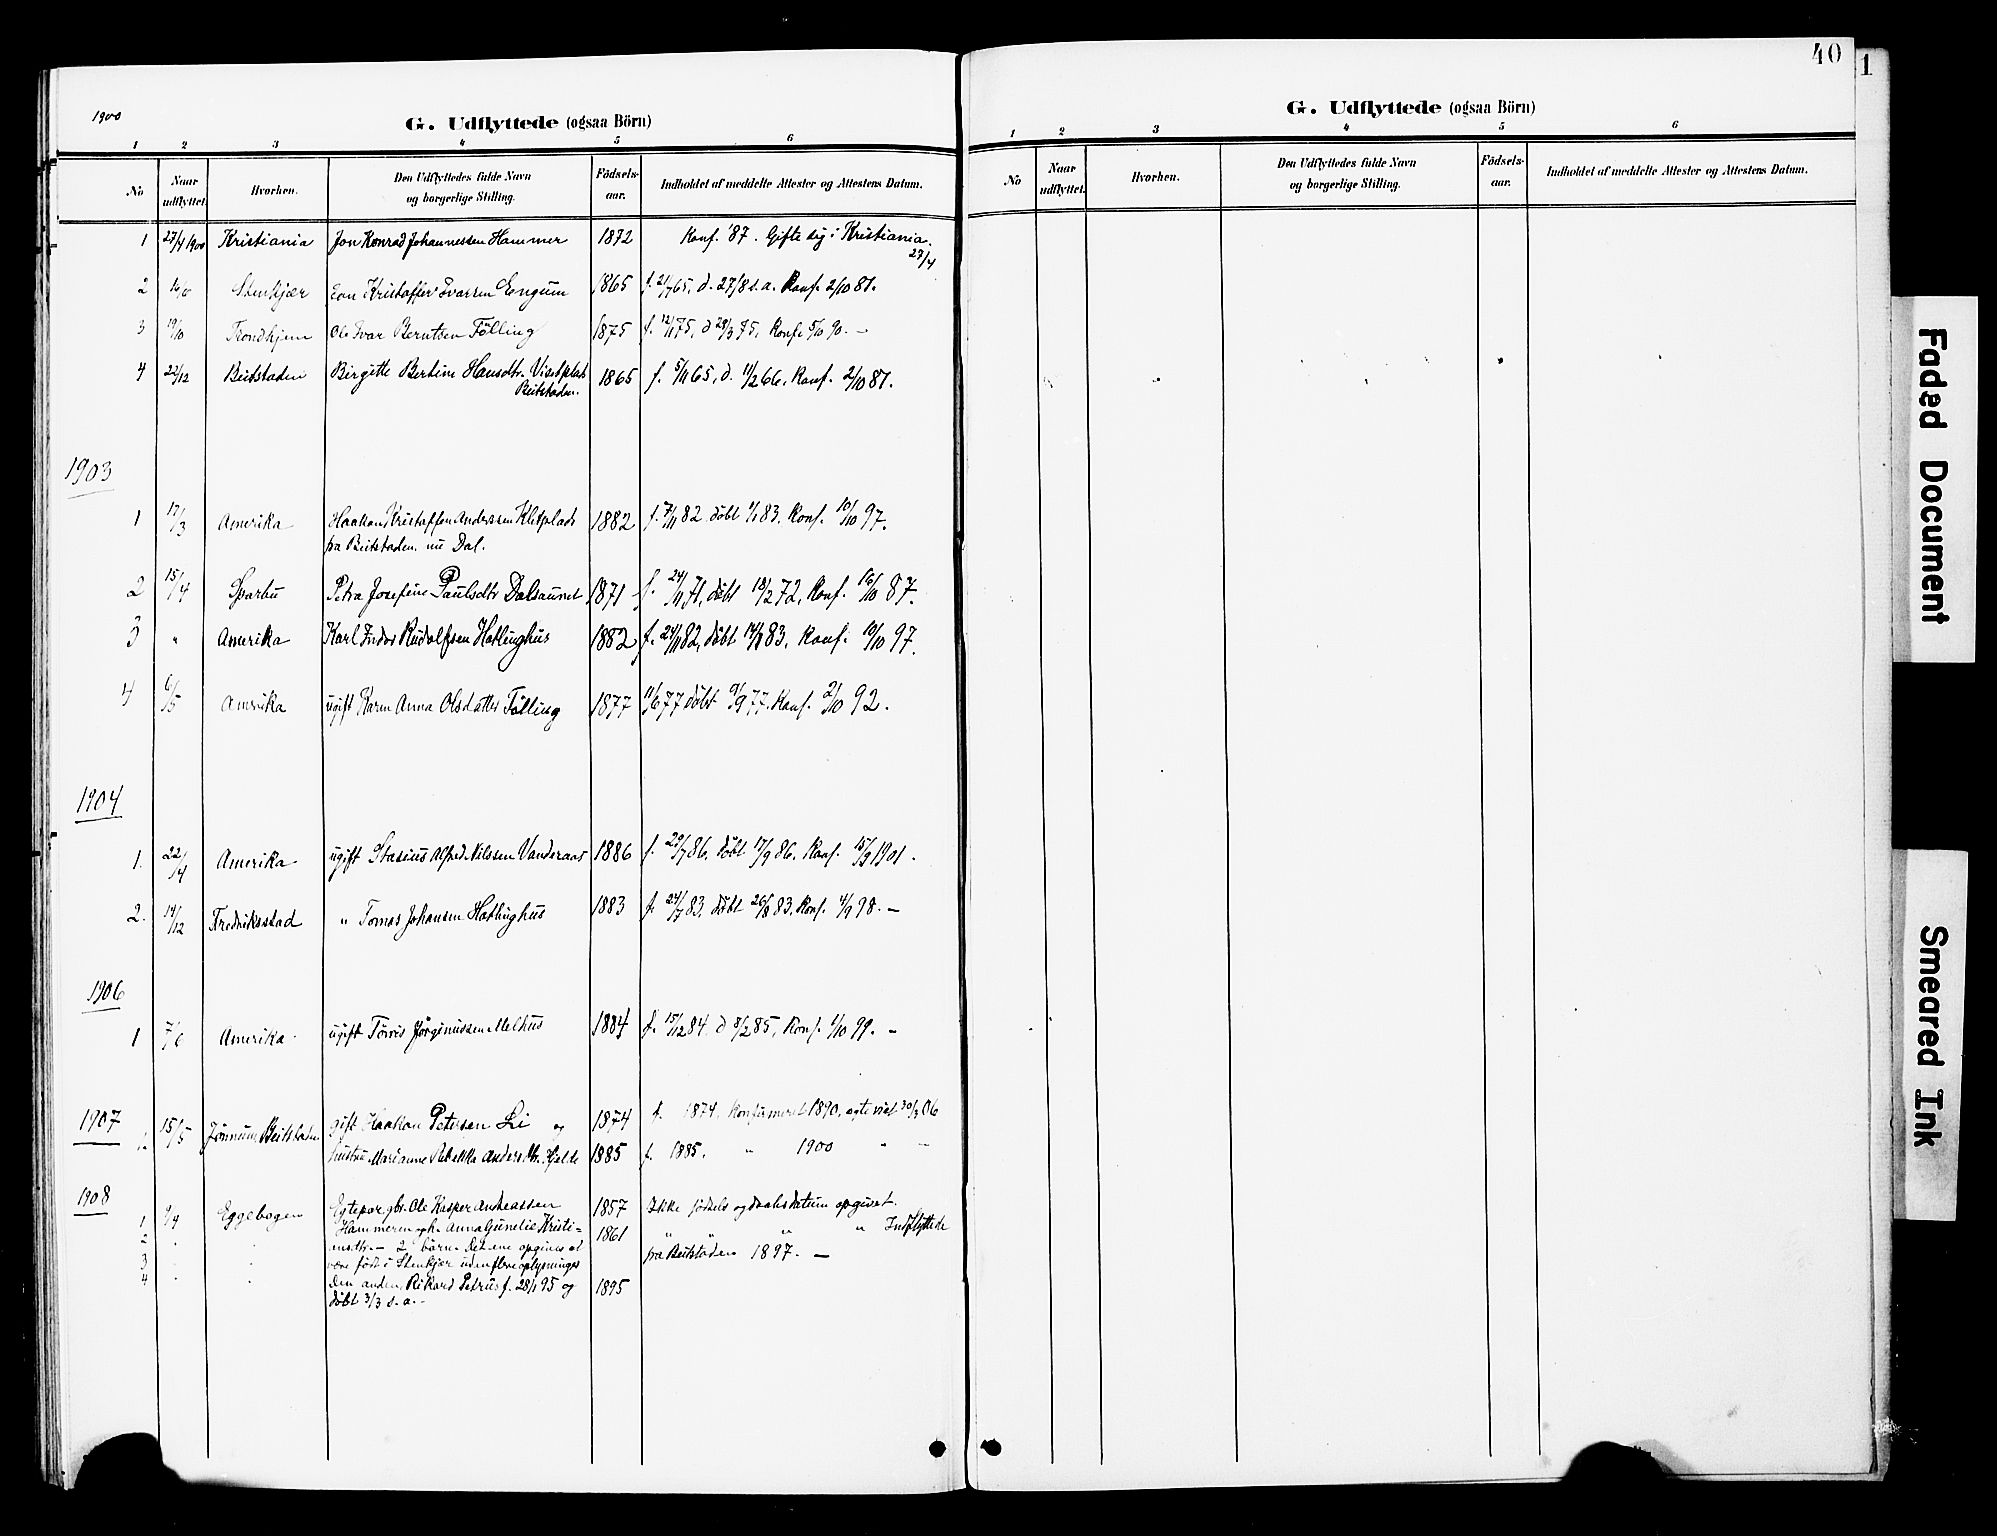 1900
G. Udflyttede (ogsaa Börn)
1 2 3 4 5 6
No Naar udflyttet. Hvorhen. Den Udflyttedes fulde Navn og borgerlige Stilling. Födsels-aar. Indholdet af meddelte Attester og Attestens Datum.
1 27/4 1900 Kristiania Jon Konrad Johannessen Hammer 1872 Konf. '87. Gifte sig i Kristiania.
27/4
2 Stenkjær Kristoffer Ivarsen Engum 1865 f. 21/7 65, d. 27/8 s.a. Konf. 2/10 81.
3 19/10 Trondhjem Ole Ivar Berntsen Fölling 1875 f. 12/1 75, d 29/3 75, Konf. 5/10 90. —
4 22/12 Beitstaden Birgitte Bertine Hansdtr. Vistplads 1865 f. 5/11 65, d. 11/2 66, Konf. 2/10 81.
Beitstaden.
1903
1 17/3 Amerika Haakon Kristoffen Anderssen Kletplads 1882 f. 7/11 82 döbt 1/1 83. Konf. 10/10 97.
fra Beitstaden. nu Dal.
2 15/4 Sparbu Petra Josefine Paulsdtr Dalsaunet 1871 f. 24/11 71, döbt 18/2 72, Konf. 16/10 87.
3 " Amerika Karl Indor Rudolfsen Hatlinghus 1882 f. 24/11 82, döbt 14/1 83. Konf. 10/10 97.
4 6/5 Amerika ugift Karen Anna Olsdatter Fölling 1877 11/6 77 döbt 9/9 77. Konf. 2/10 92.
1904
1. 22/4 Amerika ugift Stasius Alfred Nilssen Vanderaas 1886 f. 20/7 86. döbt 17/9 86. Konf. 15/9 1901.
2. 14/12 Fredriksstad " Tomas Johansen Hatlinghus 1883 f. 24/7 83. döbt 26/8 83. Konf. 4/9 98. —
1906
1 7/6 Amerika ugift Törris Jörginussen Melhus 1884 f. 15/12 84. d 8/2 85, Konf. 1/10 99. —
1907 15/5 Beitstaden gift Haakon Petersen Li og 1874 f. 1874. Konfirmeret 1890, egteviet 30/3 06
hustru Marianne Rebekka Andersdtr. Hjelde 1885 f. 1885. " 1900 " —
1908
1 9/4 Eggebogen Egtepar gbr. Ole Kasper Andreassen 1857 Ikke födsels og daabsdatum opgivet.
2 Hammeren og h. Anna Gunelie Kristi= 1861 " " " Indflyttede
3 ansdtr. — 2 börn. Det ene opgives at fra Beitstaden 1897. —
være födt i Stenkjær uden flere oplysninger
4 Den anden, Rikard Petrus f. 28/1 95 og 1895
döbt 3/3 s. a. —
40
1
G. Udflyttede (ogsaa Börn)
1 2 3 4 5 6
No Naar udflyttet. Hvorhen. Den Udflyttedes fulde Navn og borgerlige Stilling. Födsels-aar. Indholdet af meddelte Attester og Attestens Datum.
Faded Document
Smeared Ink